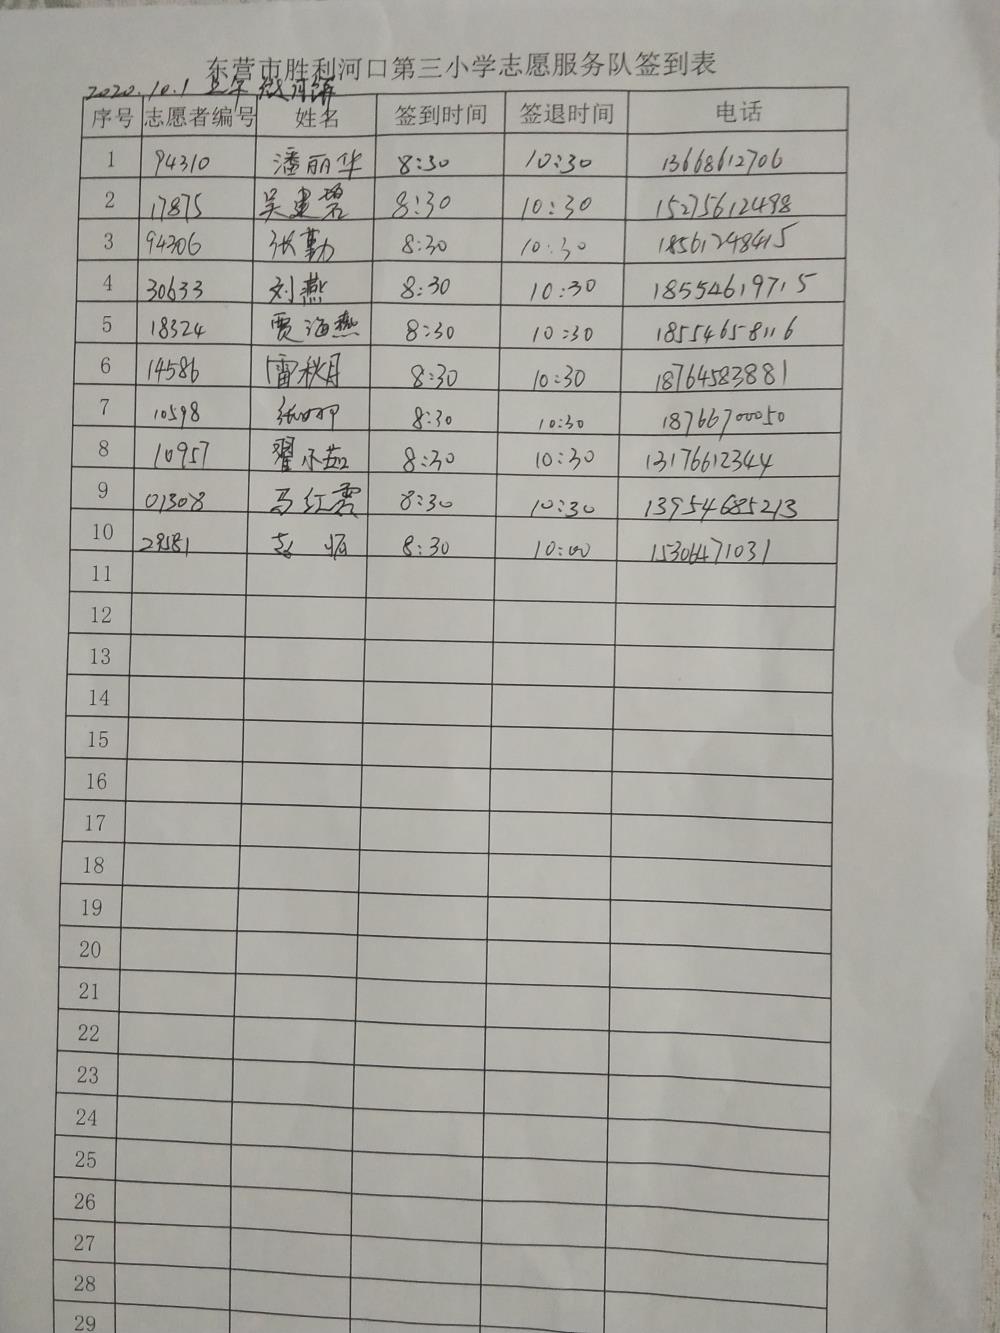 东营市胜利河口第三小学志愿服务队签到表
2020.10.1 上午 做月饼
序号 志愿者编号 姓名 签到时间 签退时间 电话
1 94310 潘丽华 8:30 10:30 13668612706
2 17875 吴建碧 8:30 10:30 15275612498
3 94306 张勤 8:30 10:30 18561248415
4 30633 刘燕 8:30 10:30 18554619715
5 18324 贾海燕 8:30 10:30 18554658116
6 14586 雷秋月 8:30 10:30 18764583881
7 10598 8:30 10:30 18766700050
8 10957 翟小茹 8:30 10:30 13176612344
9 01308 马红霞 8:30 10:30 13954685213
10 29581 8:30 10:00 15306471031
11
12
13
14
15
16
17
18
19
20
21
22
23
24
25
26
27
28
29